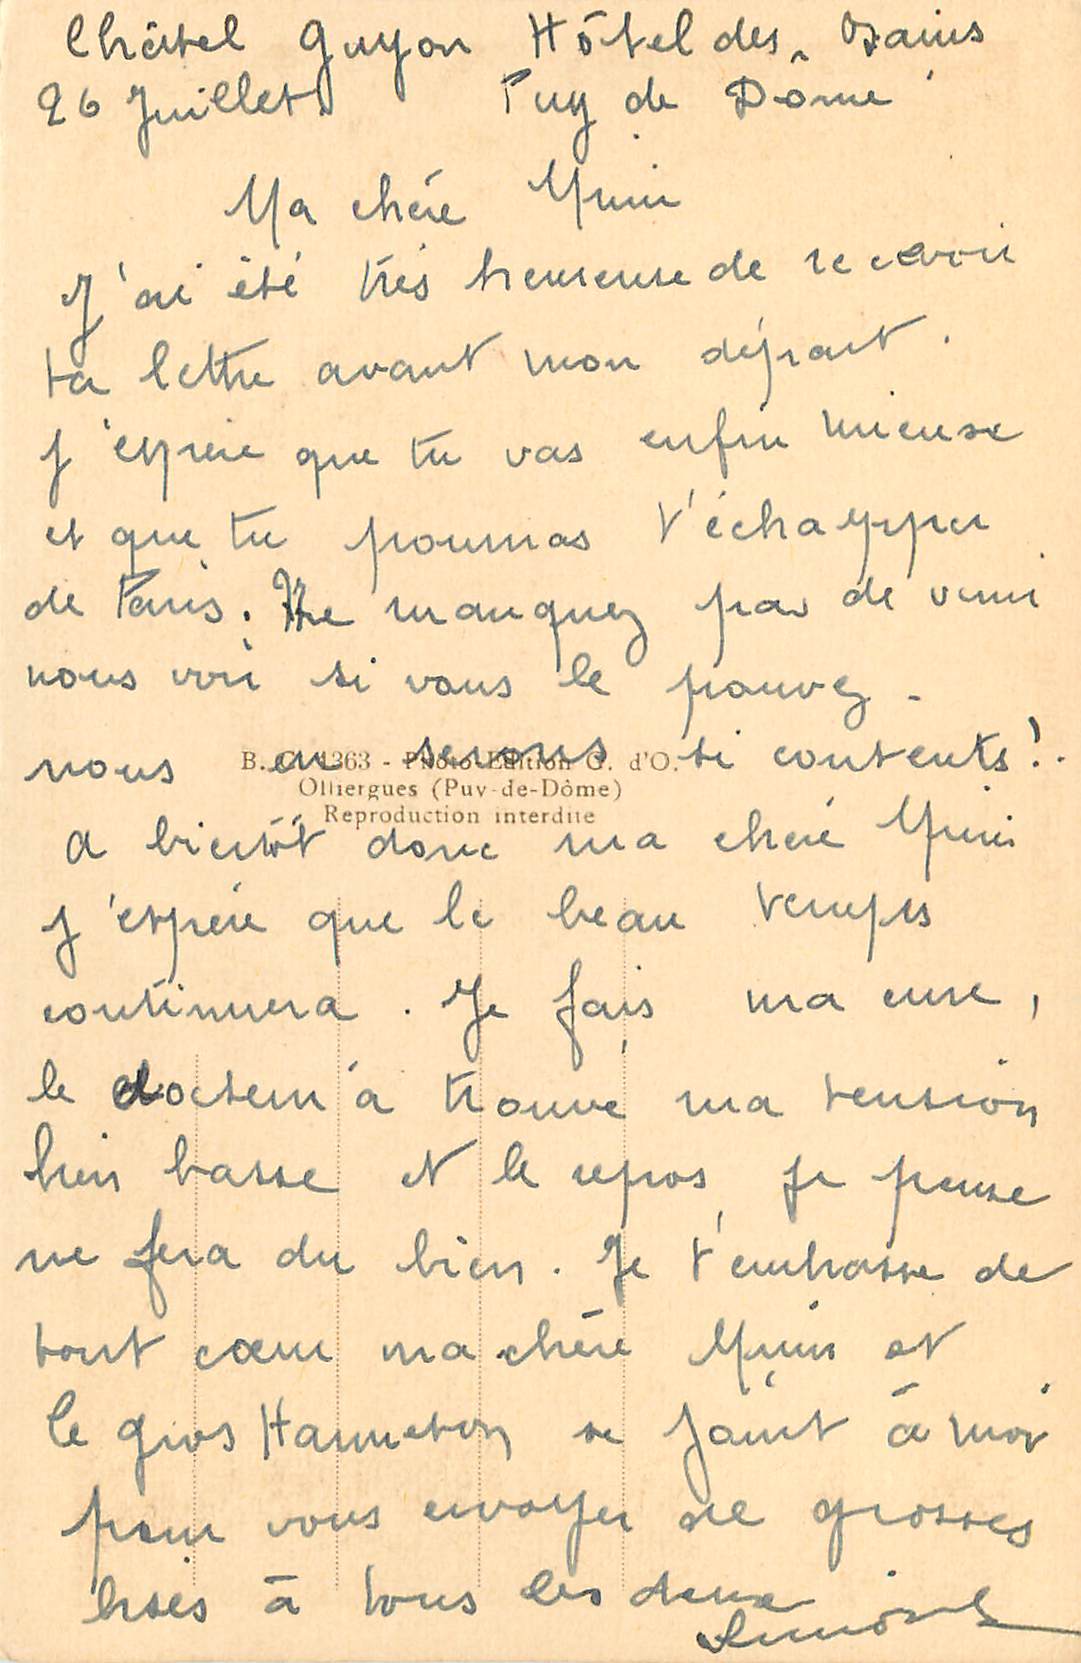 Châtel Guyon Hôtel des Bains
26 Juillet. Puy de Dôme
Ma chère Mimi
J'ai été très heureuse de recevoir
ta lettre avant mon départ.
J'espère que tu vas enfin mieux
et que tu pourras t'échapper
de Paris. Ne manquez pas de venir
nous voir si vous le pouvez -
nous en serons si contents!
B. C. 1363 - Photo-Edition G. d'O.
Olliergues (Puy-de-Dôme)
Reproduction interdite
A bientôt donc ma chère Mimi
j'espère que le beau temps
continuera. Je fais ma cure,
le docteur a trouvé ma tension
bien basse et le repos je pense
me fera du bien. Je t'embrasse de
tout cœur ma chère Mimi et
le gros Hanneton se joint à moi
pour vous envoyer de grosses
bises à tous les deux
Simone